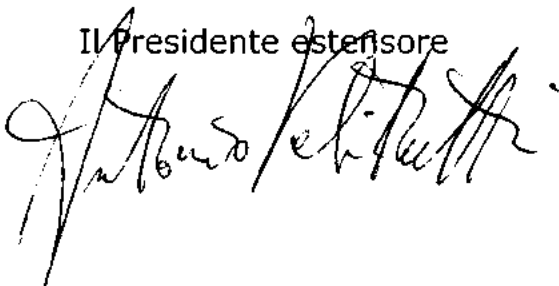 Il Presidente estensore
Antonio